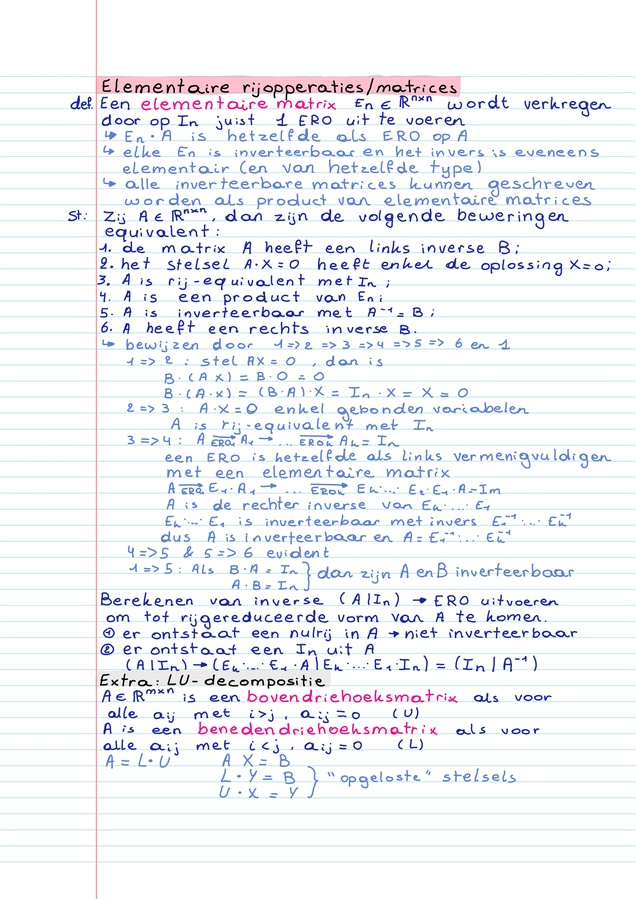 Elementaire rijopperaties/matrices
def. Een elementaire matrix En ∈ ℝⁿˣⁿ wordt verkregen
door op In juist 1 ERO uit te voeren
↳ En · A is hetzelfde als ERO op A
↳ elke En is inverteerbaar en het invers is eveneens
elementair (en van hetzelfde type)
↳ alle inverteerbare matrices kunnen geschreven
worden als product van elementaire matrices
St: Zij A ∈ ℝⁿˣⁿ, dan zijn de volgende beweringen
equivalent:
1. de matrix A heeft een links inverse B;
2. het stelsel A·X=0 heeft enkel de oplossing X=0;
3. A is rij-equivalent met In;
4. A is een product van En;
5. A is inverteerbaar met A⁻¹ = B;
6. A heeft een rechts inverse B.
↳ bewijzen door 1=>2=>3=>4=>5=>6 en 1
1=>2: stel AX=0, dan is
B·(AX) = B·0 = 0
B·(A·X) = (B·A)·X = In·X = X = 0
2=>3: A·X=0 enkel gebonden variabelen
A is rij-equivalent met In
3=>4: A ERO₁→ A₁ → ... EROk→ Ak = In
een ERO is hetzelfde als links vermenigvuldigen
met een elementaire matrix
A ERO₁→ E₁·A₁ → ... EROk→ Ek·...·E₂·E₁·A=Im
A is de rechter inverse van Ek...E₁
Ek·...·E₁ is inverteerbaar met invers E₁⁻¹·...·Ek⁻¹
dus A is inverteerbaar en A = E₁⁻¹·...·Ek⁻¹
4=>5 & 5=>6 evident
1=>5: Als B·A = In } dan zijn A en B inverteerbaar
A·B = In
Berekenen van inverse (A|In) → ERO uitvoeren
om tot rijgereduceerde vorm van A te komen.
① er ontstaat een nulrij in A → niet inverteerbaar
② er ontstaat een In uit A
(A|In) → (Ek·...·E₁·A|Ek·...·E₁·In) = (In|A⁻¹)
Extra: LU-decompositie
A ∈ ℝᵐˣⁿ is een bovendriehoeksmatrix als voor
alle aij met i>j, aij=0 (U)
A is een benedendriehoeksmatrix als voor
alle aij met i<j, aij=0 (L)
A = L·U A X = B
L·Y = B } "opgeloste" stelsels
U·X = Y